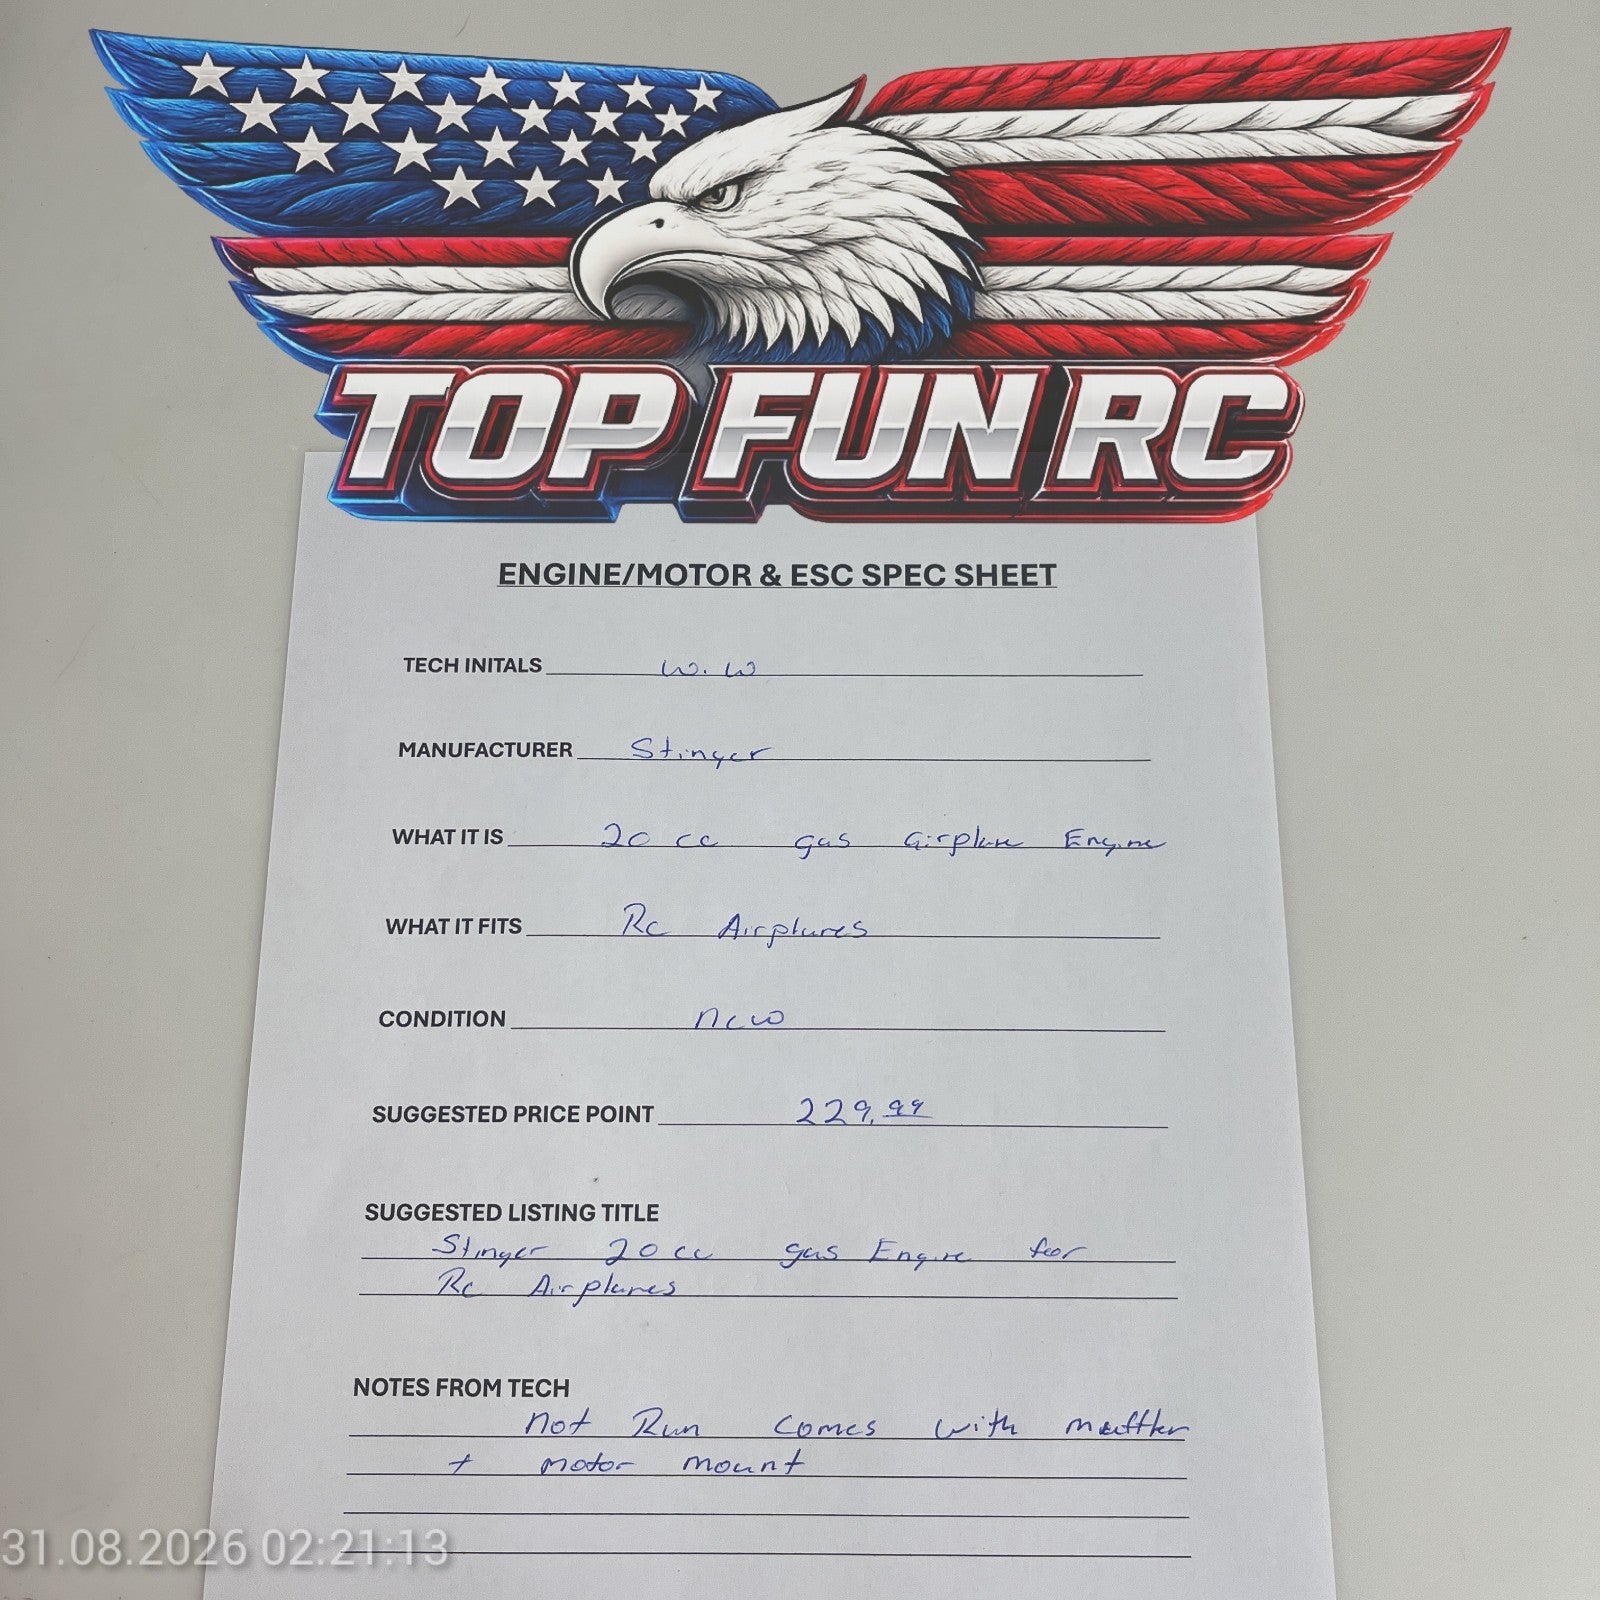 TOP FUN RC
ENGINE/MOTOR & ESC SPEC SHEET
TECH INITALS W.W
MANUFACTURER Stinger
WHAT IT IS 20 cc gas airplane Engine
WHAT IT FITS Rc Airplanes
CONDITION new
SUGGESTED PRICE POINT 229.99
SUGGESTED LISTING TITLE
Stinger 20cc gas Engine for
Rc Airplanes
NOTES FROM TECH
not Run comes with muffler
+ motor mount
31.08.2026 02:21:13